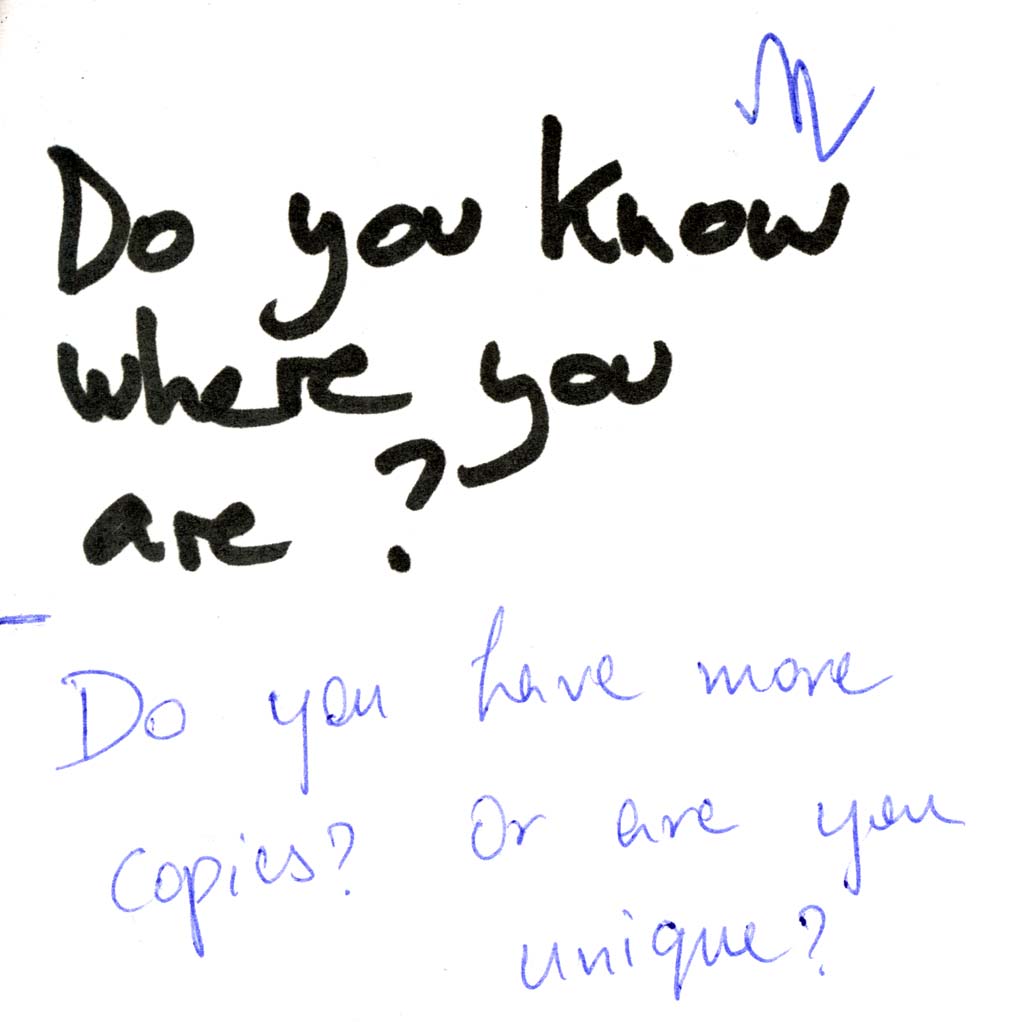 Do you know
where you
are ?
Do you have more
copies? Or are you
unique?